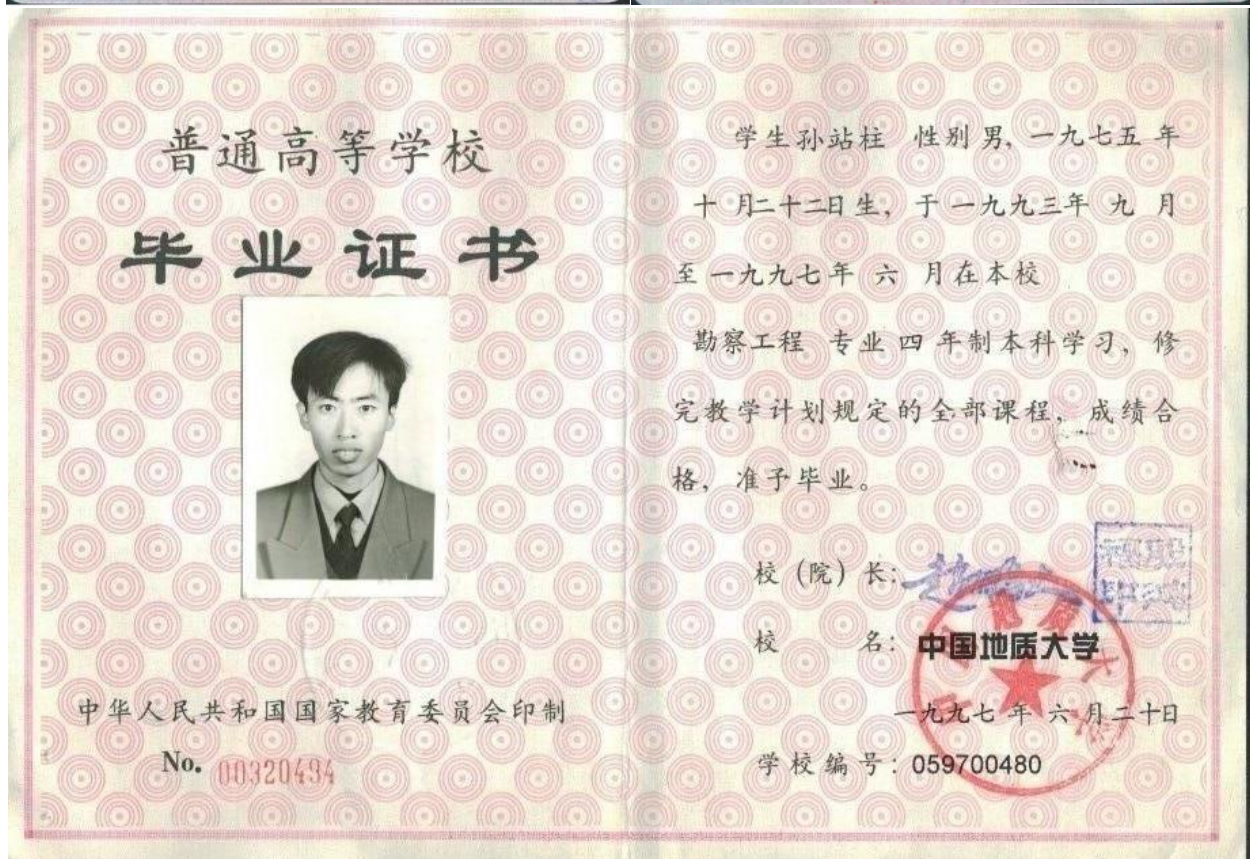 普通高等学校
毕业证书
中华人民共和国国家教育委员会印制
No. 00320494
学生孙站柱 性别男, 一九七五年
十月二十二日生, 于一九九三年九月
至一九九七年六月在本校
勘察工程 专业四年制本科学习, 修
完教学计划规定的全部课程, 成绩合
格, 准予毕业。
校（院）长:
校 名: 中国地质大学
一九九七年六月二十日
学校编号: 059700480